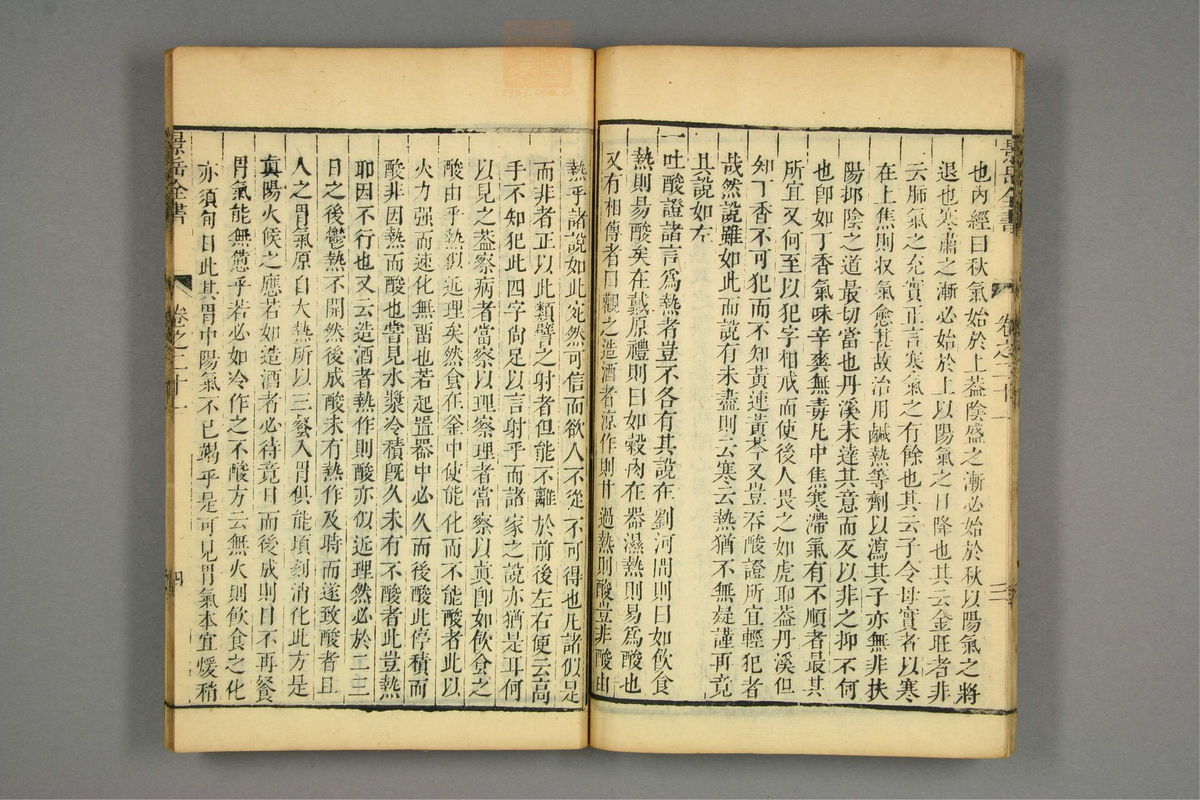 景岳全書
卷之二十一
三
也內經曰秋氣始於上葢陰盛之漸必始於秋以陽氣之將
退也寒肅之漸必始於上以陽氣之日降也其云金旺者非
云肺氣之充實正言寒氣之有餘也其云子令母實者以寒
在上焦則収氣愈甚故治用鹹熱等劑以瀉其子亦無非扶
陽抑陰之道最切當也丹溪未達其意而反以非之抑不何
也卽如丁香氣味辛爽無毒凡中焦寒滯氣有不順者最其
所宜又何至以犯字相戒而使後人畏之如虎耶葢丹溪但
知丁香不可犯而不知黃連黃芩又豈吞酸證所宜輕犯者
哉然說雖如此而說有未盡則云寒云熱猶不無疑謹再竟
其說如左
一吐酸證諸言爲熱者豈不各有其說在劉河間則曰如飲食
熱則易酸矣在戴原禮則曰如穀肉在器濕熱則易爲酸也
又有相傳者曰觀之造酒者涼作則甘過熱則酸豈非酸由
熱乎諸說如此宛然可信而欲人不從不可得也凡諸似是
而非者正以此類譬之射者但能不離於前後左右便云高
手不知犯此四字尙足以言射乎而諸家之說亦猶是耳何
以見之葢察病者當察以理察理者當察以眞卽如飲食之
酸由乎熱似近理矣然食在釜中使能化而不能酸者此以
火力强而速化無畱也若起置器中必久而後酸此停積而
酸非因熱而酸也嘗見水漿冷積旣久未有不酸者此豈熱
耶因不行也又云造酒者熱作則酸亦似近理然必於二三
日之後鬱熱不開然後成酸未有熱作及時而遂致酸者且
人之胃氣原自大熱所以三餐入胃俱能頃刻消化此方是
眞陽火候之應若如造酒者必待竟日而後成則日不再餐
胃氣能無憊乎若必如冷作之不酸方云無火則飲食之化
亦須旬日此其胃中陽氣不已竭乎是可見胃氣本宜煖稍
景岳全書
卷之二十一
四